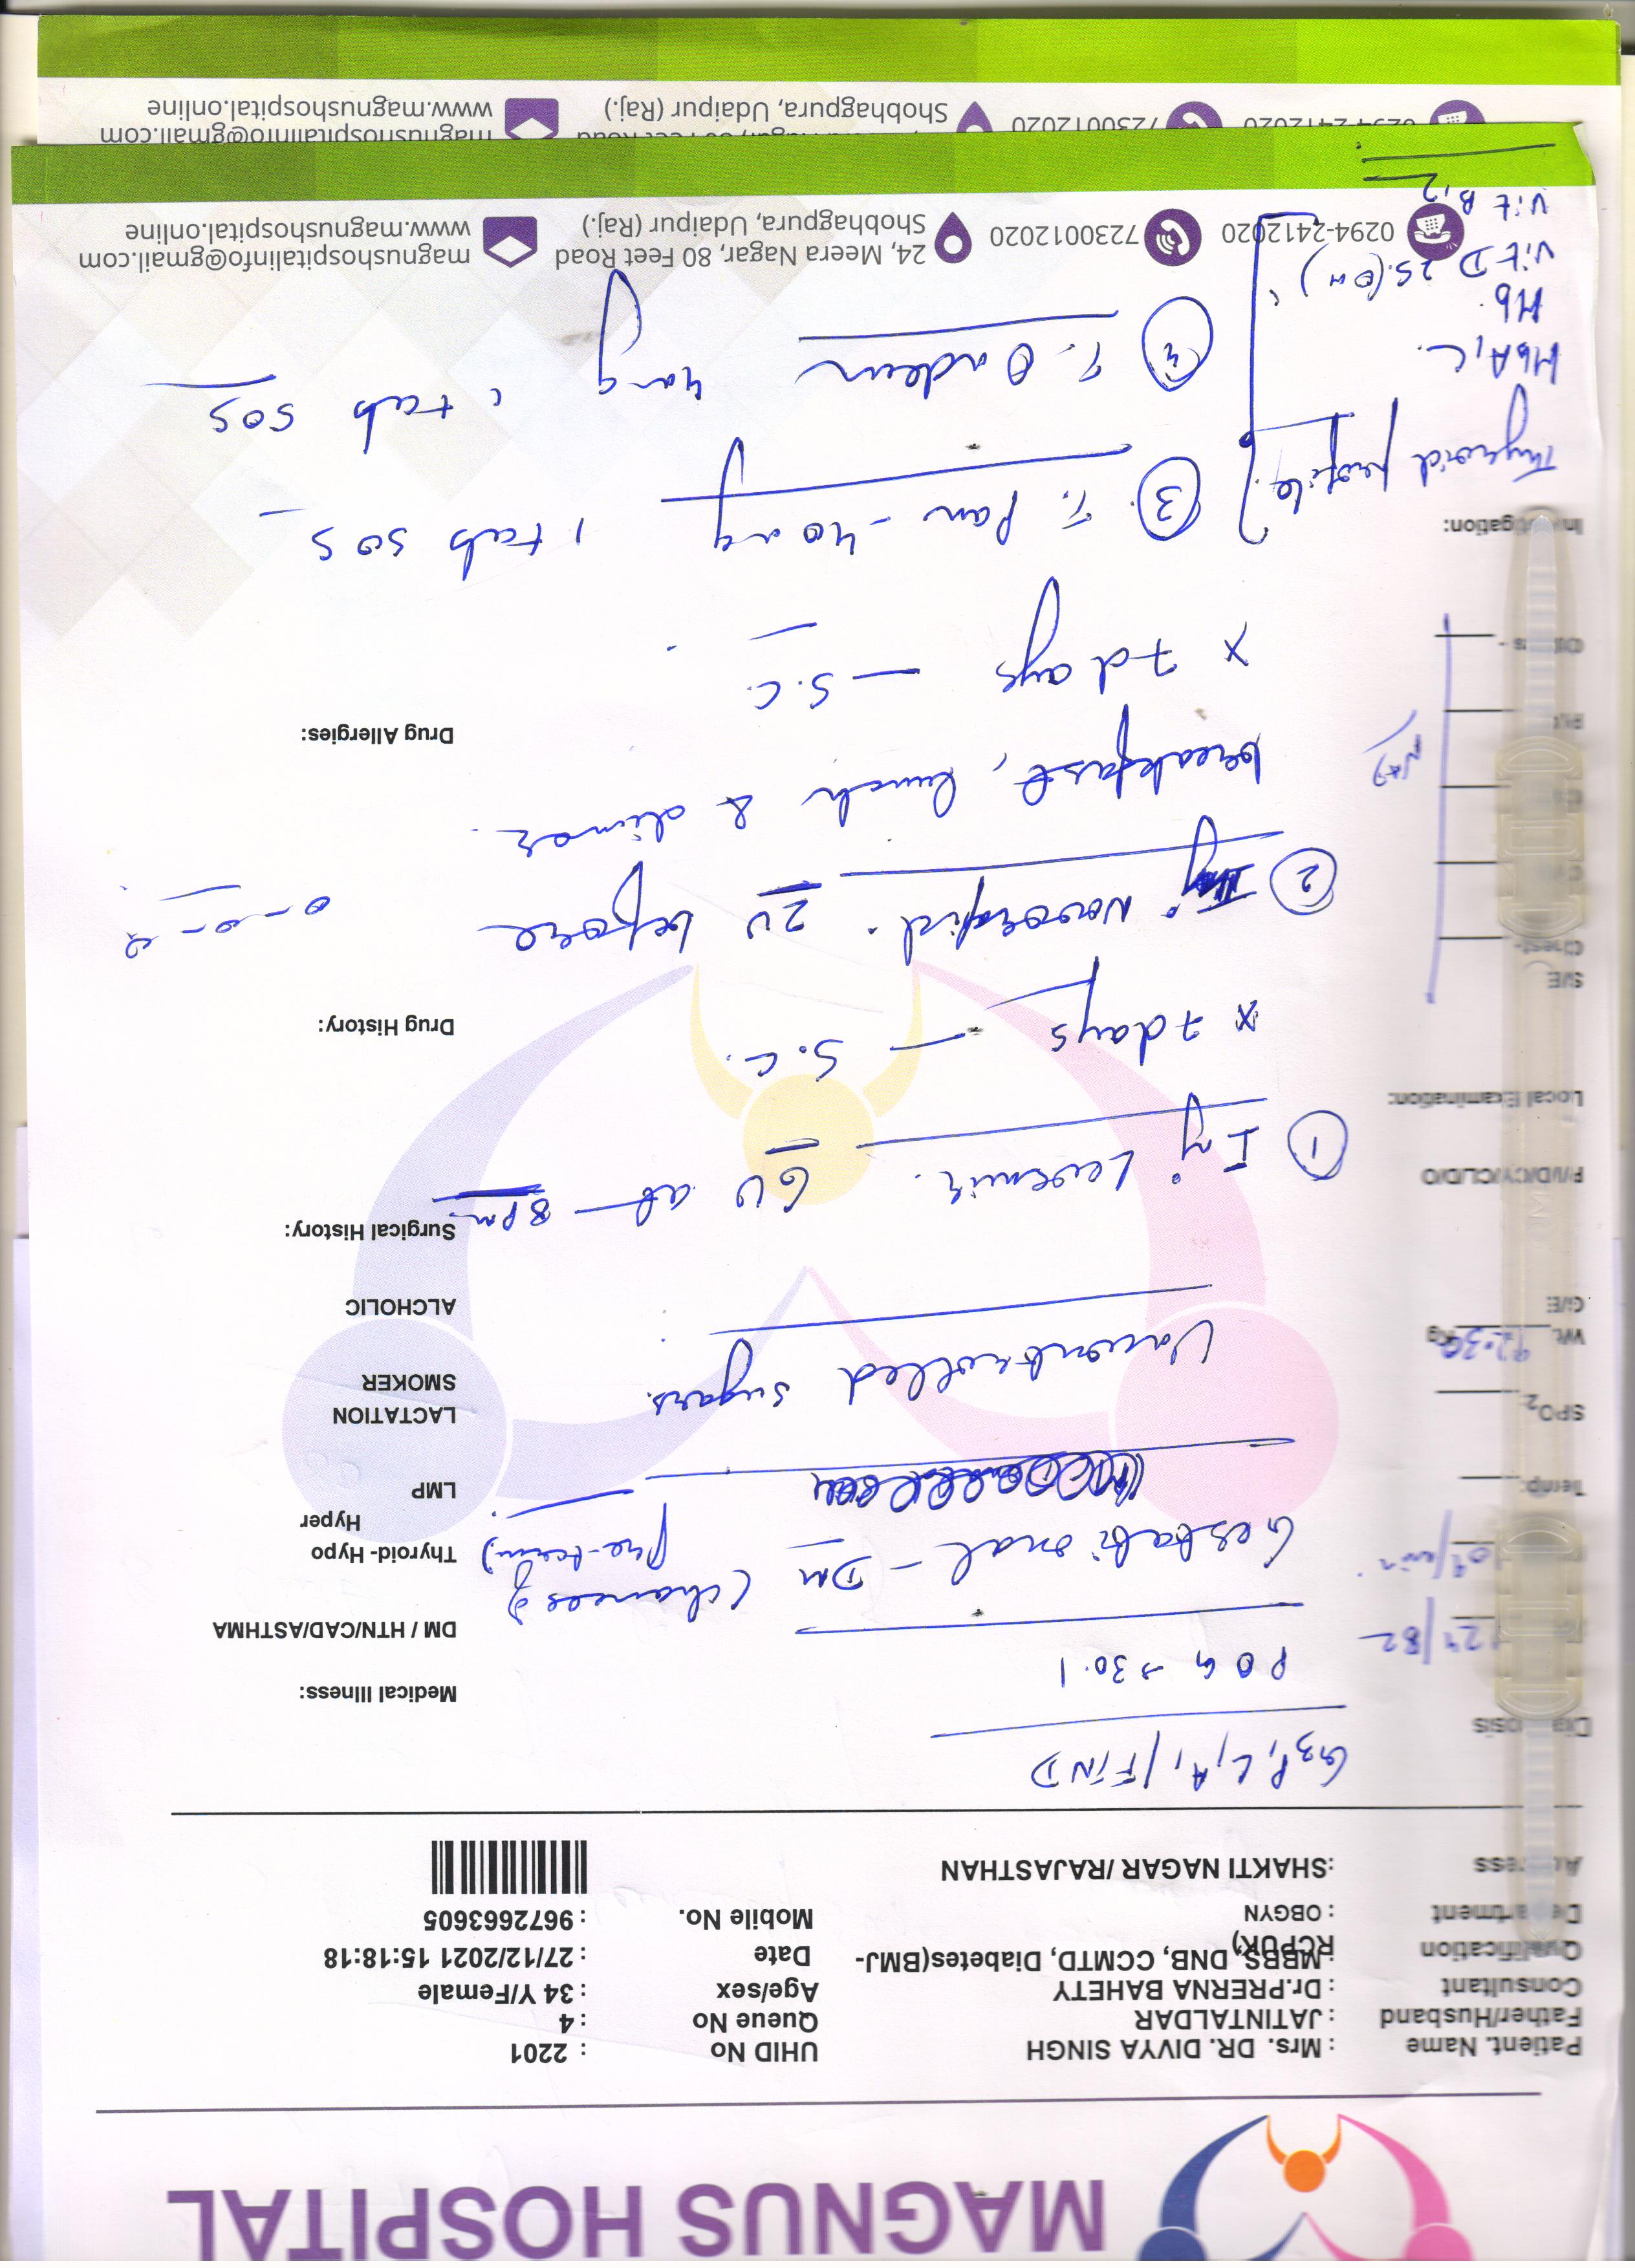 MAGNUS HOSPITAL
Patient. Name : Mrs. DR. DIVYA SINGH UHID No : 2201
Father/Husband : JATINTALDAR Queue No : 4
Consultant : Dr.PRERNA BAHETY Age/sex : 34 Y/Female
Qualification : MBBS, DNB, CCMTD, Diabetes(BMJ-RCPUK) Date : 27/12/2021 15:18:18
Department : OBGYN Mobile No. : 9672663605
Address : SHAKTI NAGAR /RAJASTHAN
G3P1L1A1/F1ND
Diagnosis
POG → 30.1
Medical Illness:
124/82
DM / HTN/CAD/ASTHMA
Gestational - DM (chances of pre-term)
Thyroid- Hypo
Hyper
Temp:
LMP
Uncontrolled sugars.
LACTATION
SPO2:
SMOKER
Wt. 92.3 Kg
G/E:
ALCHOLIC
Surgical History:
① Inj Levemir. 6U at 8pm
P/I/D/CY/CL/D/O
Local Examination:
x 7 days — S.C.
Drug History:
S/E
Chest-
② Inj Novorapid. 2U before
breakfast, lunch & dinner.
Drug Allergies:
x 7 days — S.C.
Investigation:
③ T. Pan - 40 mg 1 tab SOS
Thyroid profile
④ T. Ondem 4mg 1 tab SOS
HbA1C.
Hb.
Vit D 25.(OH)
Vit B12
0294-2412020 7230012020 24, Meera Nagar, 80 Feet Road magnushospitalinfo@gmail.com
Shobhagpura, Udaipur (Raj.) www.magnushospital.online
magnushospitalinfo@gmail.com
0294-2412020 7230012020 Shobhagpura, Udaipur (Raj.) www.magnushospital.online